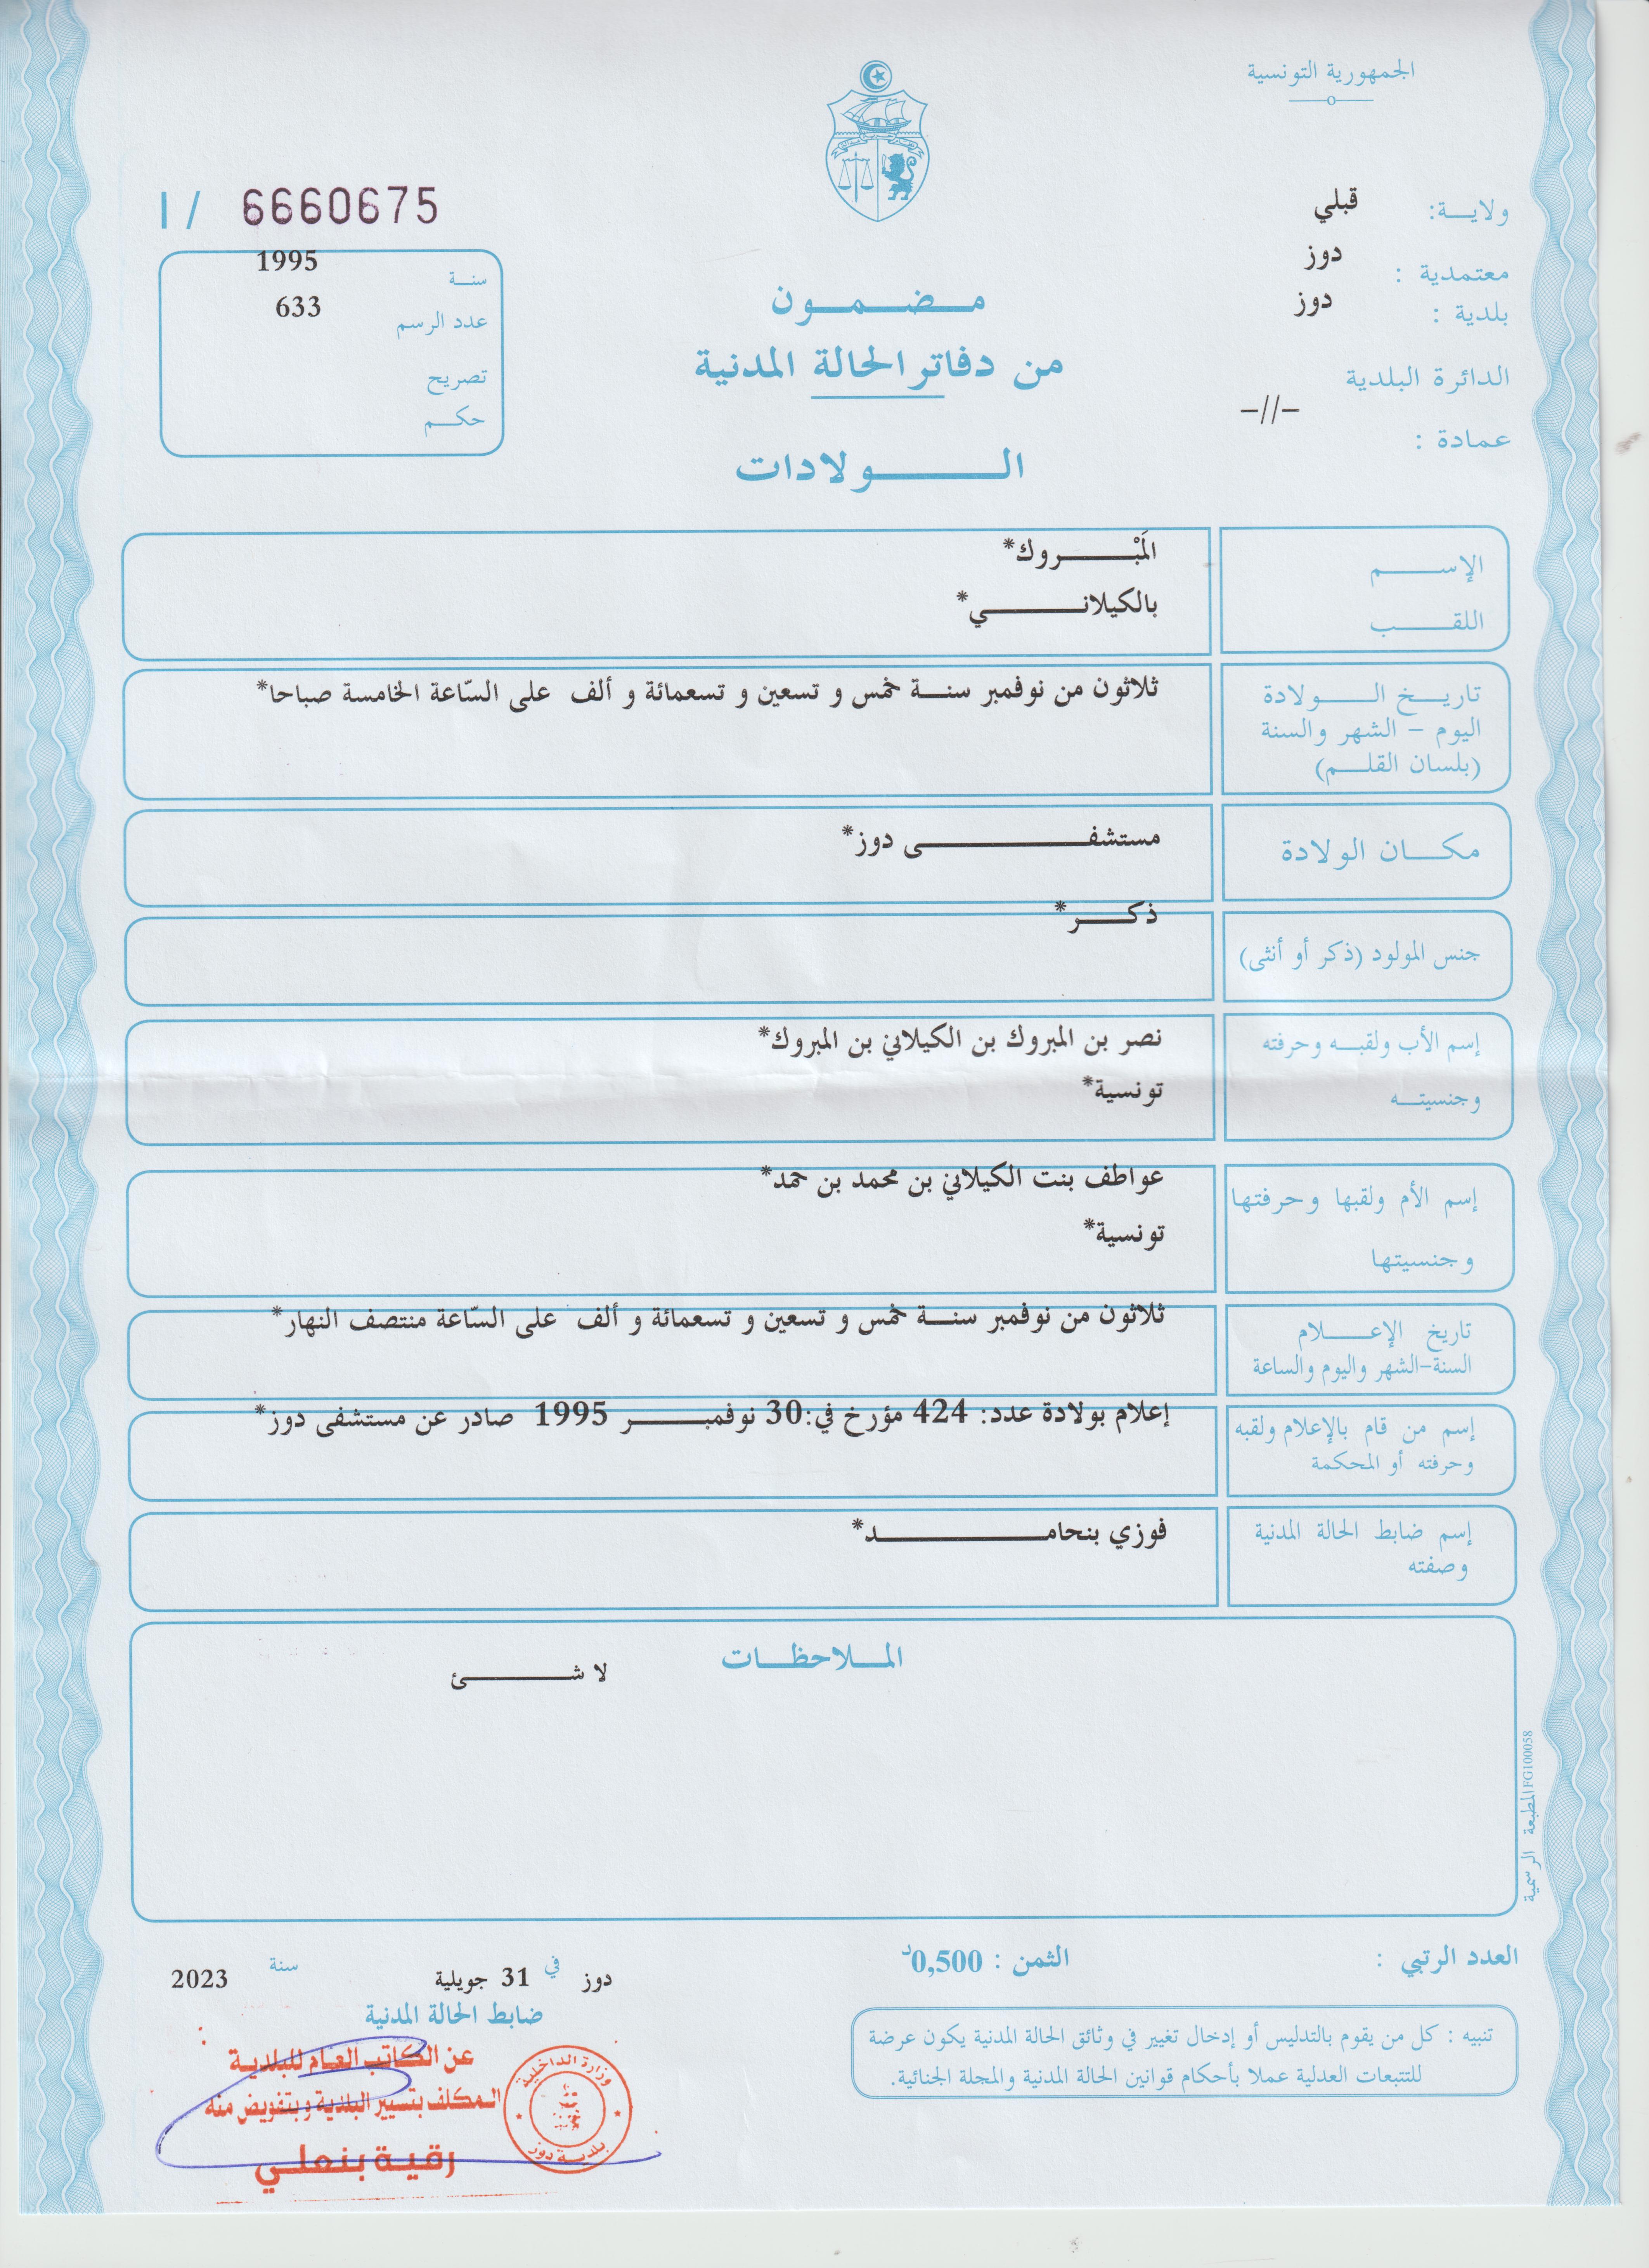 الجمهورية التونسية
ولايـــة: قبلي
معتمدية : دوز
بلدية : دوز
الدائرة البلدية
-//-
عمادة :
I / 6660675
سنـــة 1995
عدد الرسم 633
تصريح
حكـــم
مـــضـــمـــون
من دفاتر الحالة المدنية
الـــــولادات
الإســـــم
المَبْـــــروك*
اللقـــــب
بالكيلانـــــي*
تاريـــخ الـــــولادة
اليوم – الشهر والسنة
(بلسان القلـــم)
ثلاثون من نوفمبر سنـــة خمس و تسعين و تسعمائة و ألف على السّاعة الخامسة صباحا*
مكـــان الولادة
مستشفـــــى دوز*
جنس المولود (ذكر أو أنثى)
ذكـــــر*
إسم الأب ولقبـــه وحرفته
وجنسيتـــه
نصر بن المبروك بن الكيلاني بن المبروك*
تونسية*
إسم الأم ولقبها وحرفتها
وجنسيتها
عواطف بنت الكيلاني بن محمد بن حمد*
تونسية*
تاريخ الإعـــــلام
السنة-الشهر واليوم والساعة
ثلاثون من نوفمبر سنـــة خمس و تسعين و تسعمائة و ألف على السّاعة منتصف النهار*
إسم من قام بالإعلام ولقبه
وحرفته أو المحكمة
إعلام بولادة عدد: 424 مؤرخ في:30 نوفمبـــــر 1995 صادر عن مستشفى دوز*
إسم ضابط الحالة المدنية
وصفته
فوزي بنحامـــــد*
المـــلاحظـــات
لا شـــــئ
المطبعة الرسمية FG100058
العدد الرتبي :
الثمن : 0,500د
تنبيه : كل من يقوم بالتدليس أو إدخال تغيير في وثائق الحالة المدنية يكون عرضة
للتتبعات العدلية عملا بأحكام قوانين الحالة المدنية والمجلة الجنائية.
دوز في 31 جويلية سنة 2023
ضابط الحالة المدنية
عن الكاتب العام للبلدية
المكلف بتسيير البلدية وبتفويض منه
رقية بنعلي
وزارة الداخلية
بلدية دوز